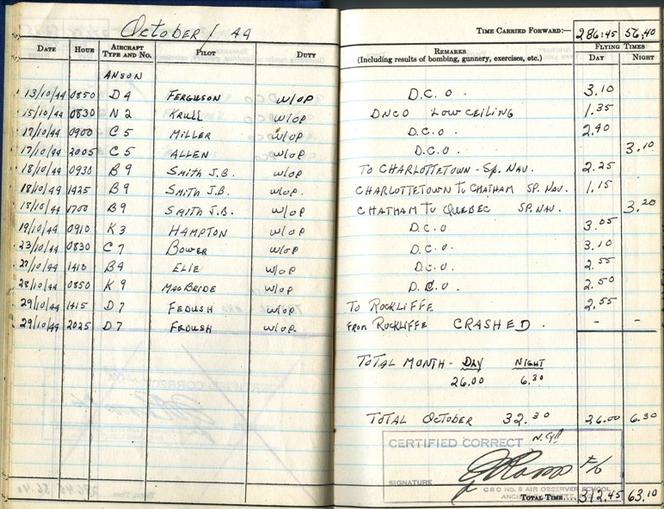 October / 44
TIME CARRIED FORWARD:— 286:45 56,40
DATE HOUR AIRCRAFT TYPE AND NO. PILOT DUTY REMARKS (Including results of bombing, gunnery, exercises, etc.) FLYING TIMES DAY NIGHT
ANSON
13/10/44 0850 D4 FERGUSON W/OP D.C.O. 3.10
15/10/44 0830 N2 KRULL W/OP DNCO LOW CEILING 1.35
17/10/44 0900 C5 MILLER W/OP D.C.O. 2.40
17/10/44 2005 C5 ALLEN W/OP D.C.O. 3.10
18/10/44 0930 B9 SMITH J.B. W/OP TO CHARLOTTETOWN - Sp. NAV. 2.25
18/10/44 1425 B9 SMITH J.B. W/OP CHARLOTTETOWN TO CHATHAM SP. NAV. 1.15
18/10/44 1700 B9 SMITH J.B. W/OP CHATHAM TO QUEBEC SP. NAV. 3.20
19/10/44 0910 K3 HAMPTON W/OP D.C.O 3.05
23/10/44 0830 C7 BOWER W/OP D.C.O. 3.10
27/10/44 1410 B4 ELIE W/OP D.C.O. 2.55
28/10/44 0850 K9 MACBRIDE W/OP D.C.O. 2.50
29/10/44 1415 D7 FEDUSH W/OP. TO ROCKLIFFE 2.55
29/10/44 2025 D.7 FEDUSH W/OP. FROM ROCKLIFFE CRASHED. - -
TOTAL MONTH - DAY NIGHT
26.00 6.30
TOTAL OCTOBER 32.30 26.00 6.30
CERTIFIED CORRECT
SIGNATURE F/O
C B O NO. 8 AIR OBSERVER SCHOOL
TOTAL TIME.... 312.45 63.10